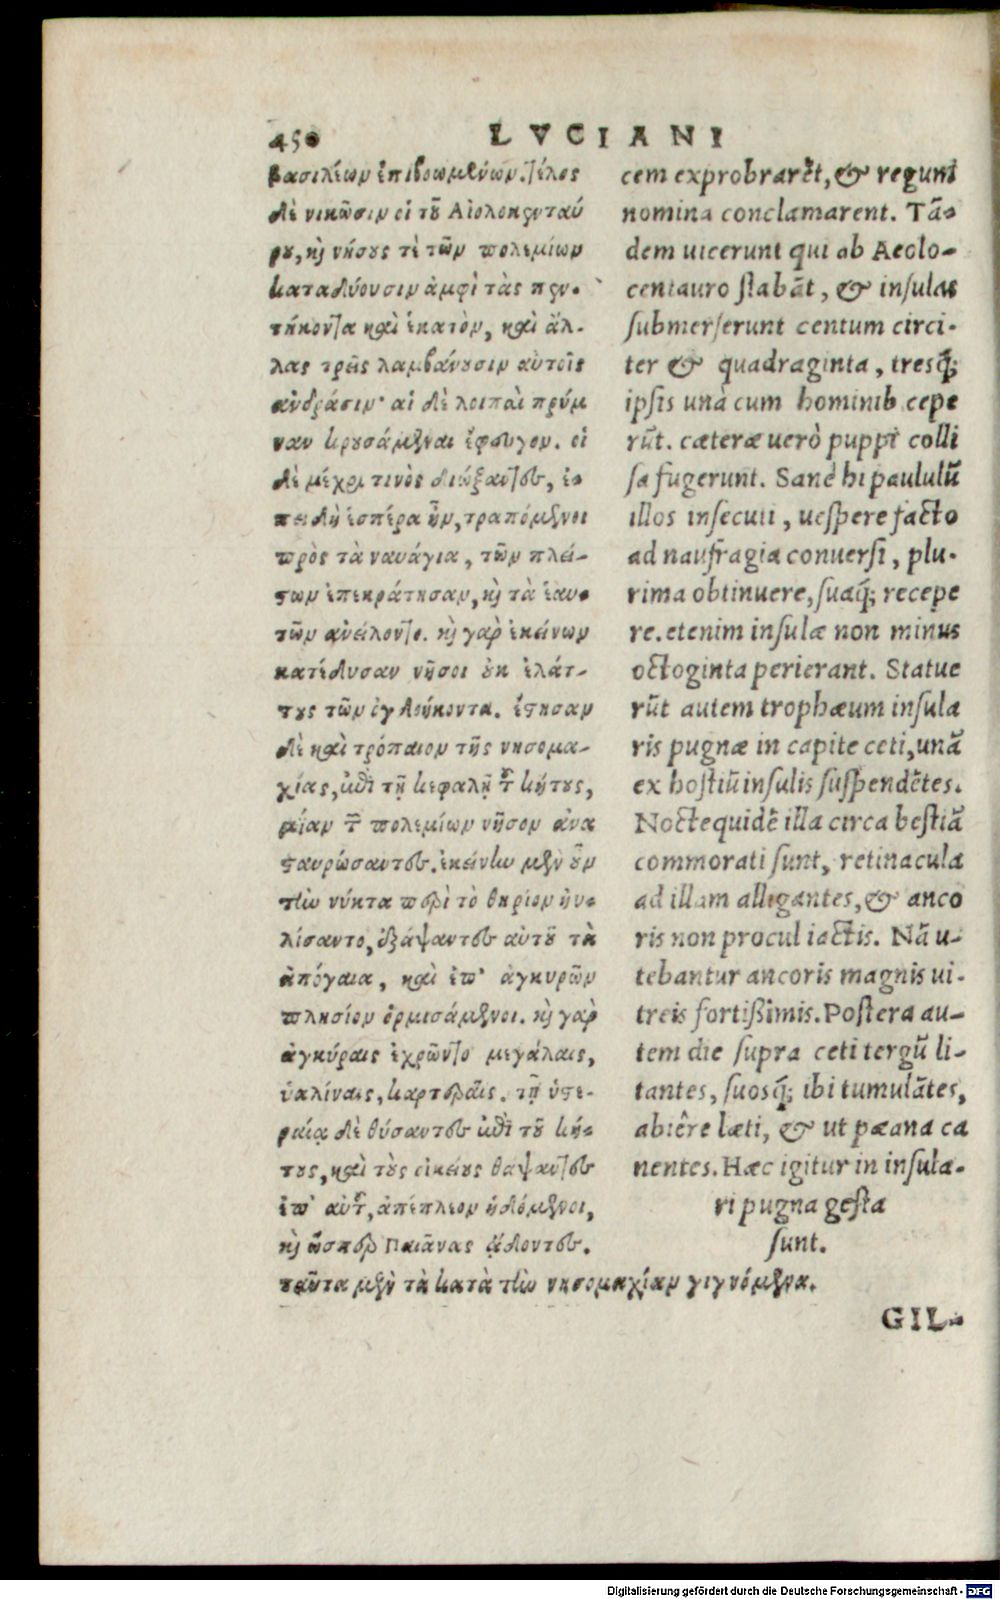 450 LVCIANI
βασιλέων ἐπιβοωμένων. τέλος
δὲ νικῶσιν οἱ τοῦ Αἰολοκενταύ
ρου, καὶ νήσους τὲ τῶν πολεμίων
καταδύουσιν ἀμφὶ τὰς πεν-
τήκοντα καὶ ἑκατὸν, καὶ ἄλ-
λας τρεῖς λαμβάνουσιν αὐτοῖς
ἀνδράσιν· αἱ δὲ λοιπαὶ πρύμ
ναν κρουσάμεναι ἔφευγον. οἱ
δὲ μέχρι τινὸς διώξαντες, ἐ-
πειδὴ ἑσπέρα ἦν, τραπόμενοι
πρὸς τὰ ναυάγια, τῶν πλεί-
στων ἐπεκράτησαν, καὶ τὰ ἑαυ-
τῶν ἀνείλοντο. καὶ γὰρ ἐκείνων
κατέδυσαν νῆσοι οὐκ ἐλάτ-
τους τῶν ὀγδοήκοντα. ἔστησαν
δὲ καὶ τρόπαιον τῆς νησομα-
χίας, ἐπὶ τῇ κεφαλῇ τοῦ κήτους,
μίαν τῶν πολεμίων νῆσον ἀνα
σταυρώσαντες. ἐκείνην μὲν οὖν
τὴν νύκτα περὶ τὸ θηρίον ηὐ-
λίσαντο, ἐξάψαντες αὐτοῦ τὰ
ἀπόγαια, καὶ ἐπ' ἀγκυρῶν
πλησίον ὁρμισάμενοι. καὶ γὰρ
ἀγκύραις ἐχρῶντο μεγάλαις,
ὑαλίναις, καρτεραῖς. τῇ ὑστε-
ραίᾳ δὲ θύσαντες ἐπὶ τοῦ κή-
τους, καὶ τοὺς οἰκείους θάψαντες
ἐπ' αὐτοῦ, ἀπέπλεον ἡδόμενοι,
καὶ ὥσπερ Παιᾶνας ᾄδοντες.
ταῦτα μὲν τὰ κατὰ τὴν νησομαχίαν γιγνόμενα.
cem exprobrarẽt, & regum
nomina conclamarent. Tã-
dem uicerunt qui ab Aeolo-
centauro stabãt, & insulas
submerserunt centum circi-
ter & quadraginta, tresq́;
ipsis unà cum hominib. cepe
rũt. cæteræ uerò puppi colli
sa fugerunt. Sanè hi paululũ
illos insecuti, uespere facto
ad naufragia conuersi, plu-
rima obtinuere, suaq́; recepe
re. etenim insulæ non minus
octoginta perierant. Statue
rũt autem trophæum insula
ris pugnæ in capite ceti, unã
ex hostiũ insulis suspendẽtes.
Nocte quidẽ illa circa bestiã
commorati sunt, retinacula
ad illam alligantes, & anco
ris non procul iactis. Nã u-
tebantur ancoris magnis ui-
treis fortißimis. Postera au-
tem die supra ceti tergũ li-
tantes, suosq́; ibi tumulãtes,
abiêre læti, & ut pæana ca
nentes. Hæc igitur in insula-
ri pugna gesta
sunt.
GIL-
Digitalisierung gefördert durch die Deutsche Forschungsgemeinschaft - DFG